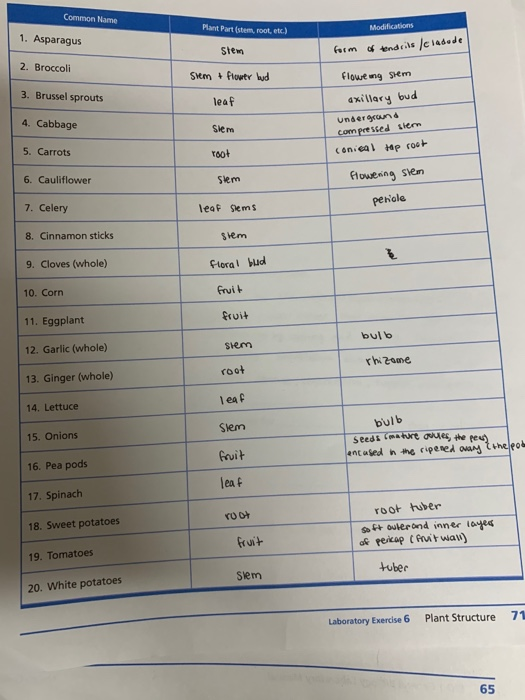 Common Name Plant Part (stem, root, etc.) Modifications
1. Asparagus Stem form of tendrils /cladode
2. Broccoli Stem + flower bud flowering stem
3. Brussel sprouts leaf axillary bud
4. Cabbage Stem underground
compressed stem
5. Carrots root conical tap root
6. Cauliflower Stem flowering stem
7. Celery leaf stems petiole
8. Cinnamon sticks stem
9. Cloves (whole) floral bud
10. Corn fruit
11. Eggplant fruit
12. Garlic (whole) stem bulb
13. Ginger (whole) root rhizome
14. Lettuce leaf
15. Onions Stem bulb
16. Pea pods fruit seeds (mature ovules, the peas)
encased in the ripened ovary (the pod
17. Spinach leaf
18. Sweet potatoes root root tuber
19. Tomatoes fruit soft outer and inner layers
of pericap (fruit wall)
20. White potatoes Stem tuber
Laboratory Exercise 6 Plant Structure 71
65